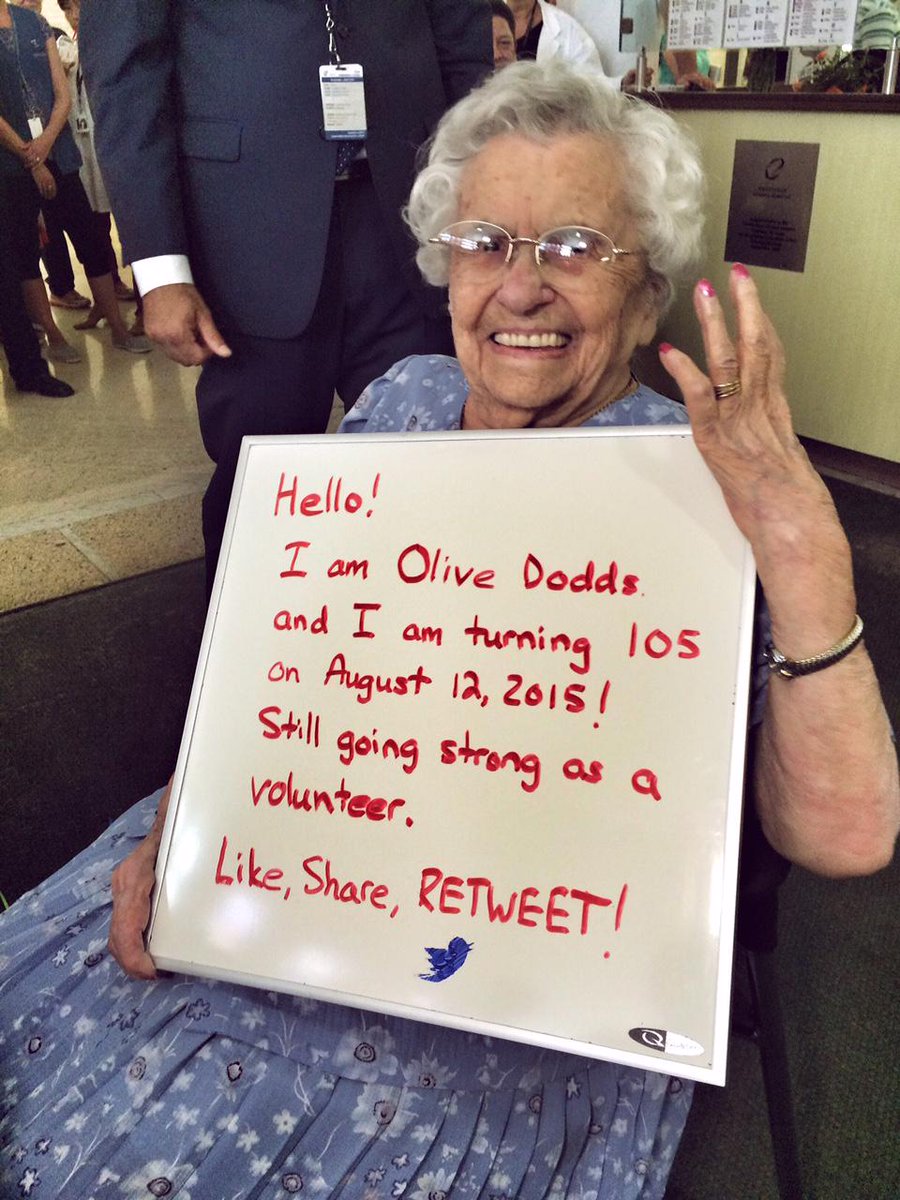 Hello!
I am Olive Dodds.
and I am turning 105
on August 12, 2015!
Still going strong as a
volunteer.
Like, Share, RETWEET!